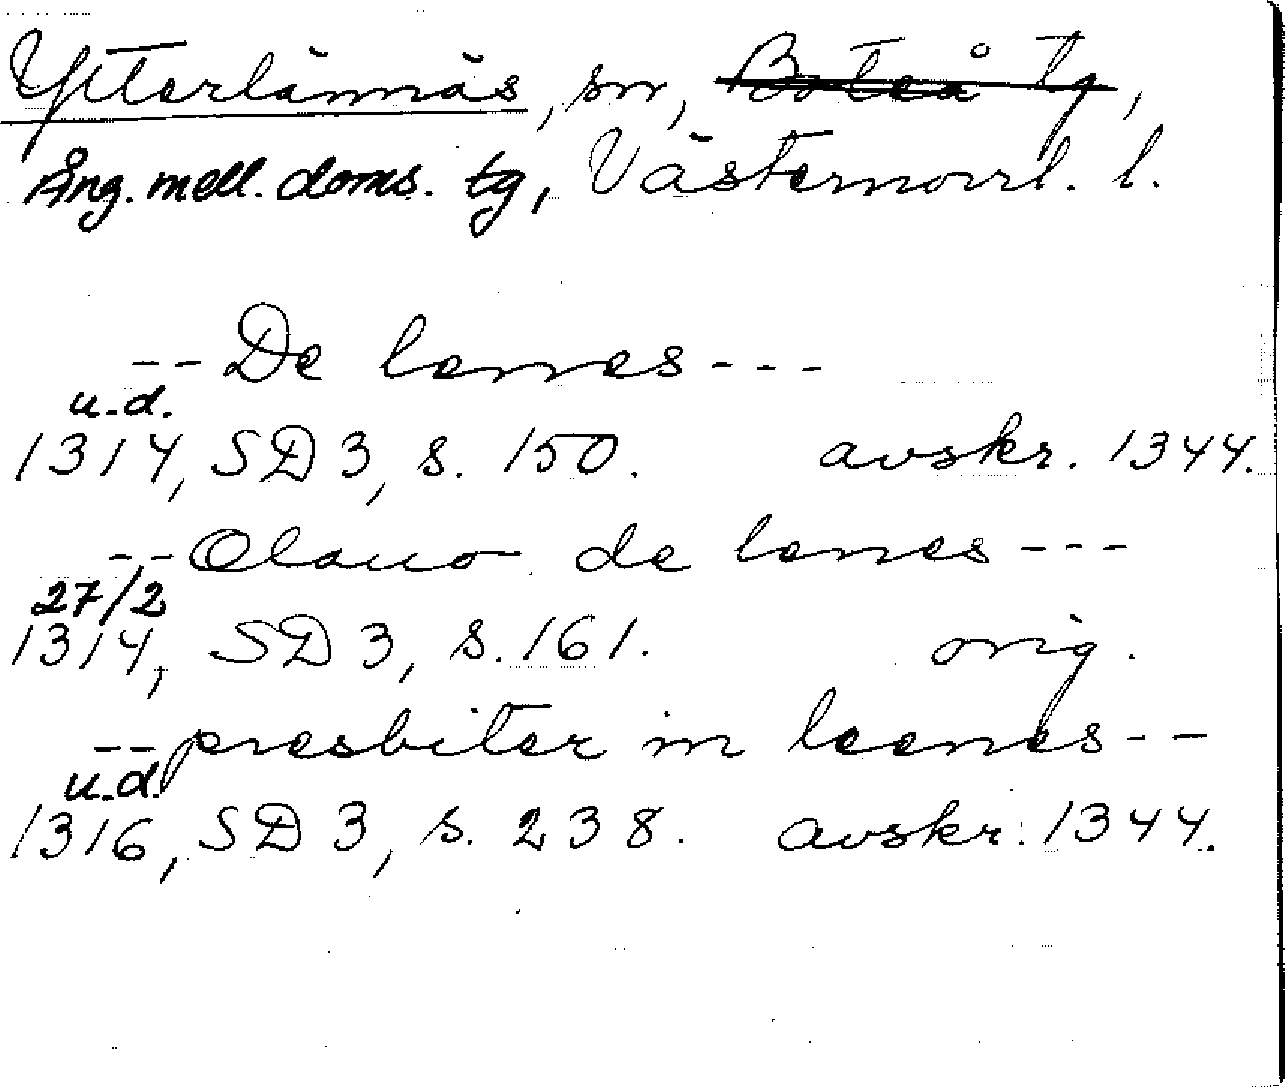 Ytterlännäs, sn, Boteå tg,
Ång. mell. doms. tg, Västernorrl. l.
-- De lennes ---
u.d.
1314, SD 3, s. 150. avskr. 1344.
-- Olauo de lenes ---
27/2
1314, SD 3, s. 161. orig.
-- presbiter in leenes --
u.d.
1316, SD 3, s. 238. avskr. 1344.